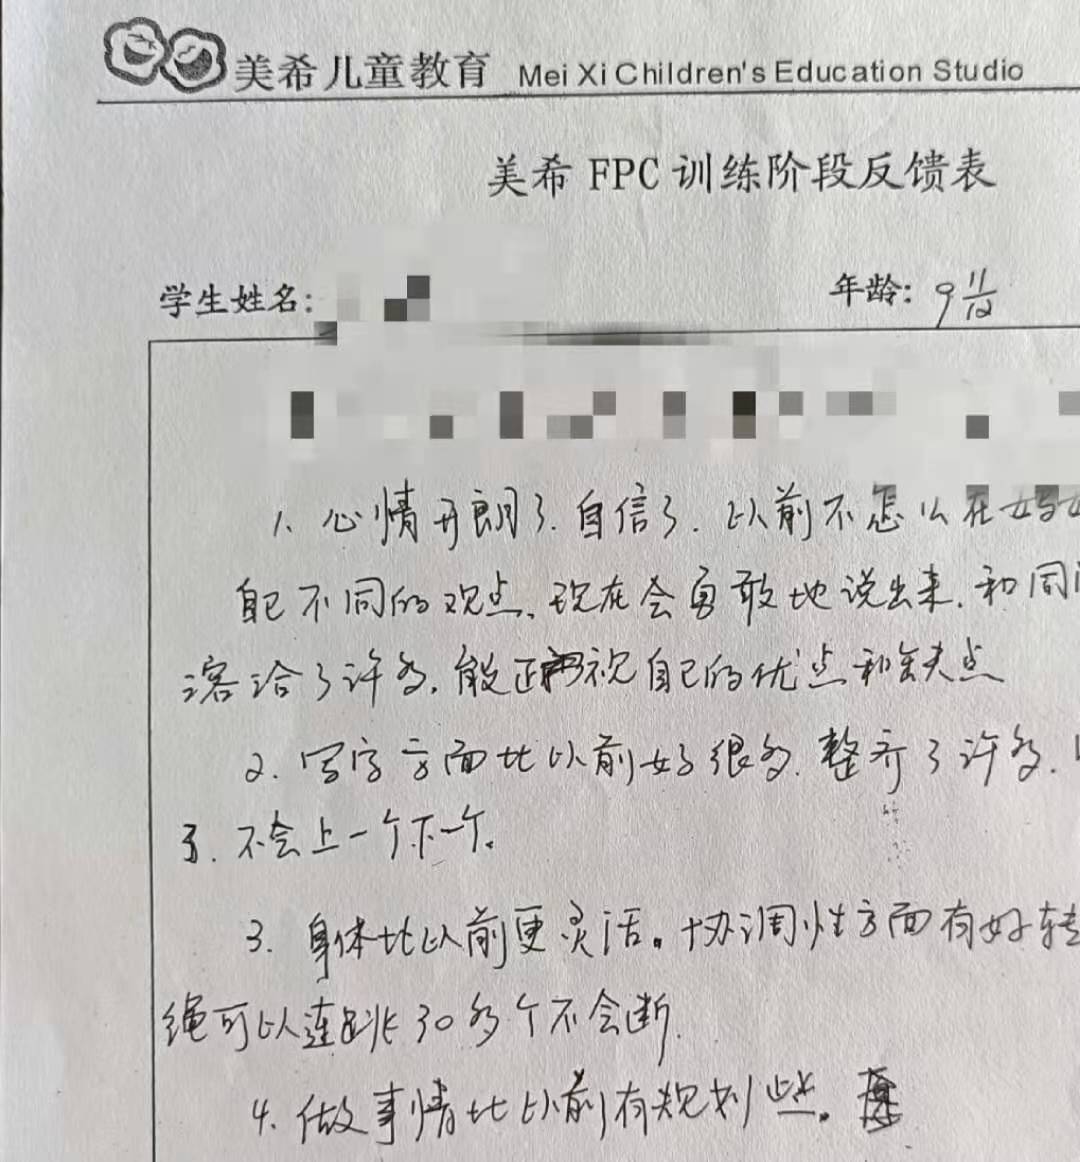 美希儿童教育 Mei Xi Children's Education Studio
美希 FPC 训练阶段反馈表
学生姓名: 年龄: 9 11/12
1. 心情开朗了.自信了.以前不怎么在
自己不同的观点.现在会勇敢地说出来.和同
洽了许多.能正视自己的优点和缺点
2. 写字方面比以前好很多.整齐了许多.
了.不会上一个下一个.
3. 身体比以前更灵活。协调性方面有好转
绳可以连跳30多个不会断.
4. 做事情比以前有规划些.